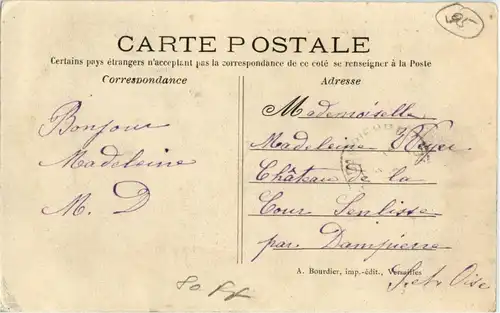 CARTE POSTALE
Certains pays étrangers n'acceptant pas la correspondance de ce coté se renseigner à la Poste
Correspondance
Bonjour
Madeleine
M. D
Adresse
Mademoiselle
Madeleine
Château de la
Cour Senlisse
par Dampierre
S et Oise
A. Bourdier, imp.-édit., Versailles
80 FF